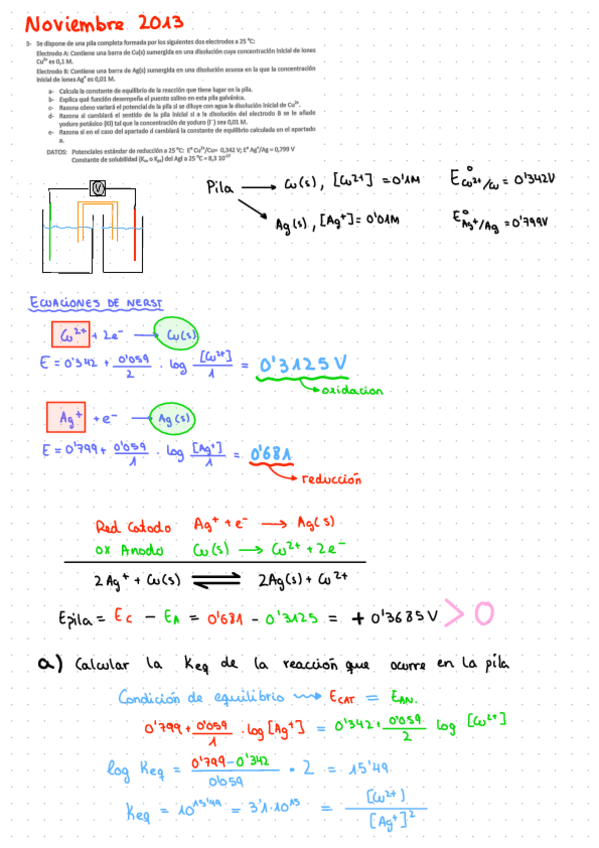 Noviembre 2013
3- Se dispone de una pila completa formada por los siguientes dos electrodos a 25 ºC:
Electrodo A: Contiene una barra de Cu(s) sumergida en una disolución cuya concentración inicial de iones
Cu²⁺ es 0,1 M.
Electrodo B: Contiene una barra de Ag(s) sumergida en una disolución acuosa en la que la concentración
inicial de iones Ag⁺ es 0,01 M.
a- Calcula la constante de equilibrio de la reacción que tiene lugar en la pila.
b- Explica qué función desempeña el puente salino en esta pila galvánica.
c- Razona cómo variará el potencial de la pila si se diluye con agua la disolución inicial de Cu²⁺.
d- Razona si cambiará el sentido de la pila inicial si a la disolución del electrodo B se le añade
yoduro potásico (KI) tal que la concentración de yoduro (I⁻) sea 0,01 M.
e- Razona si en el caso del apartado d cambiará la constante de equilibrio calculada en el apartado
a.
DATOS: Potenciales estándar de reducción a 25 ºC: Eº Cu²⁺/Cu= 0,342 V; Eº Ag⁺/Ag = 0,799 V
Constante de solubilidad (Kₛ o Kₚₛ) del AgI a 25 ºC = 8,3 10⁻¹⁷
V
Pila → Cu(s), [Cu²⁺] = 0'1M E°Cu²⁺/Cu = 0'342V
Ag(s), [Ag⁺] = 0'01M E°Ag⁺/Ag = 0'799V
ECUACIONES DE NERST
Cu²⁺ + 2e⁻ → Cu(s)
E = 0'342 + 0'059/2 · log [Cu²⁺]/1 = 0'3125 V
→ oxidacion
Ag⁺ + e⁻ → Ag(s)
E = 0'799 + 0'059/1 · log [Ag⁺]/1 = 0'681
→ reducción
Red Catodo Ag⁺ + e⁻ → Ag(s)
ox Anodo Cu(s) → Cu²⁺ + 2e⁻
2Ag⁺ + Cu(s) ⇌ 2Ag(s) + Cu²⁺
Epila = Ec − EA = 0'681 − 0'3125 = + 0'3685V > 0
a) Calcular la Keq de la reacción que ocurre en la pila
Condición de equilibrio → ECAT = EAN.
0'799 + 0'059/1 · log [Ag⁺] = 0'342 + 0'059/2 log [Cu²⁺]
log Keq = 0'799−0'342/0'059 · 2 = 15'49
Keq = 10¹⁵'⁴⁹ = 3'1·10¹⁵ = [Cu²⁺]/[Ag⁺]²